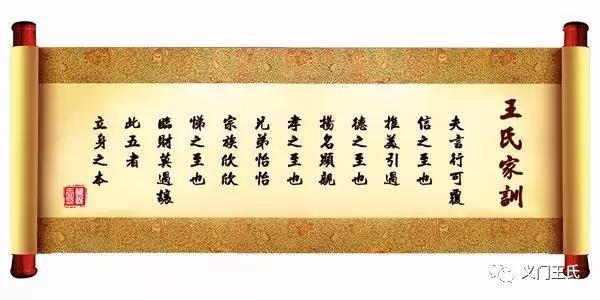 王氏家訓
夫言行可覆
信之至也
推美引過
德之至也
揚名顯親
孝之至也
兄弟怡怡
宗族欣欣
悌之至也
臨財莫過讓
此五者
立身之本
义门王氏